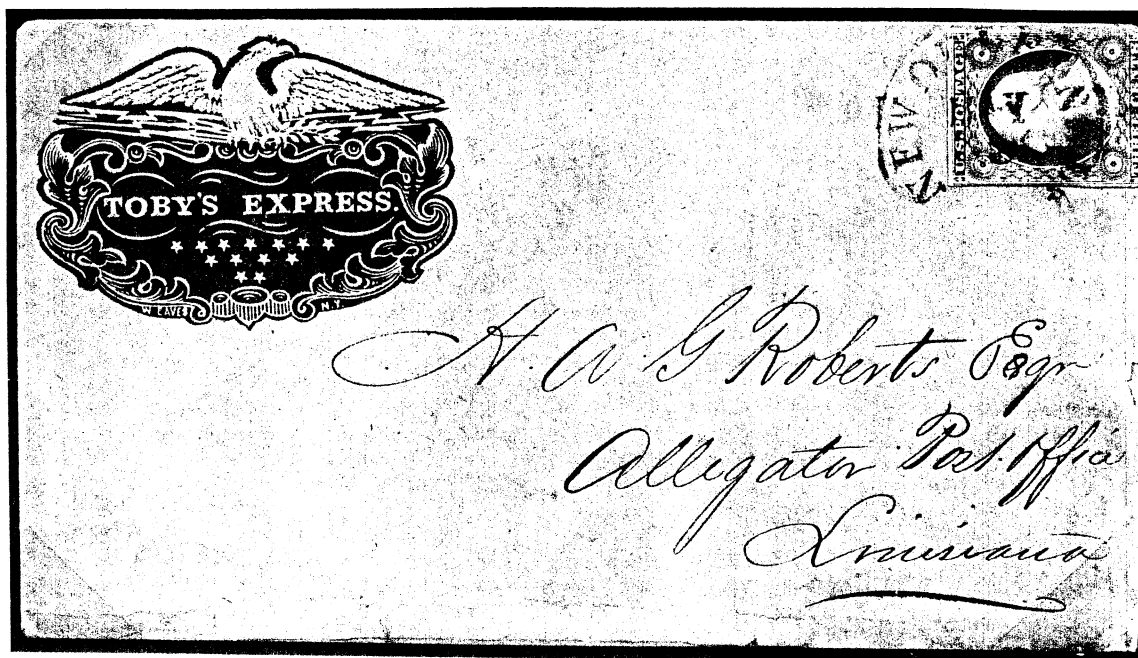 TOBY'S EXPRESS.
W EAVES N.Y.
NEW O
LA
U.S. POSTAGE
THREE CENTS
H. A G Roberts Esqr
Allegator Post. Office
Louisiana